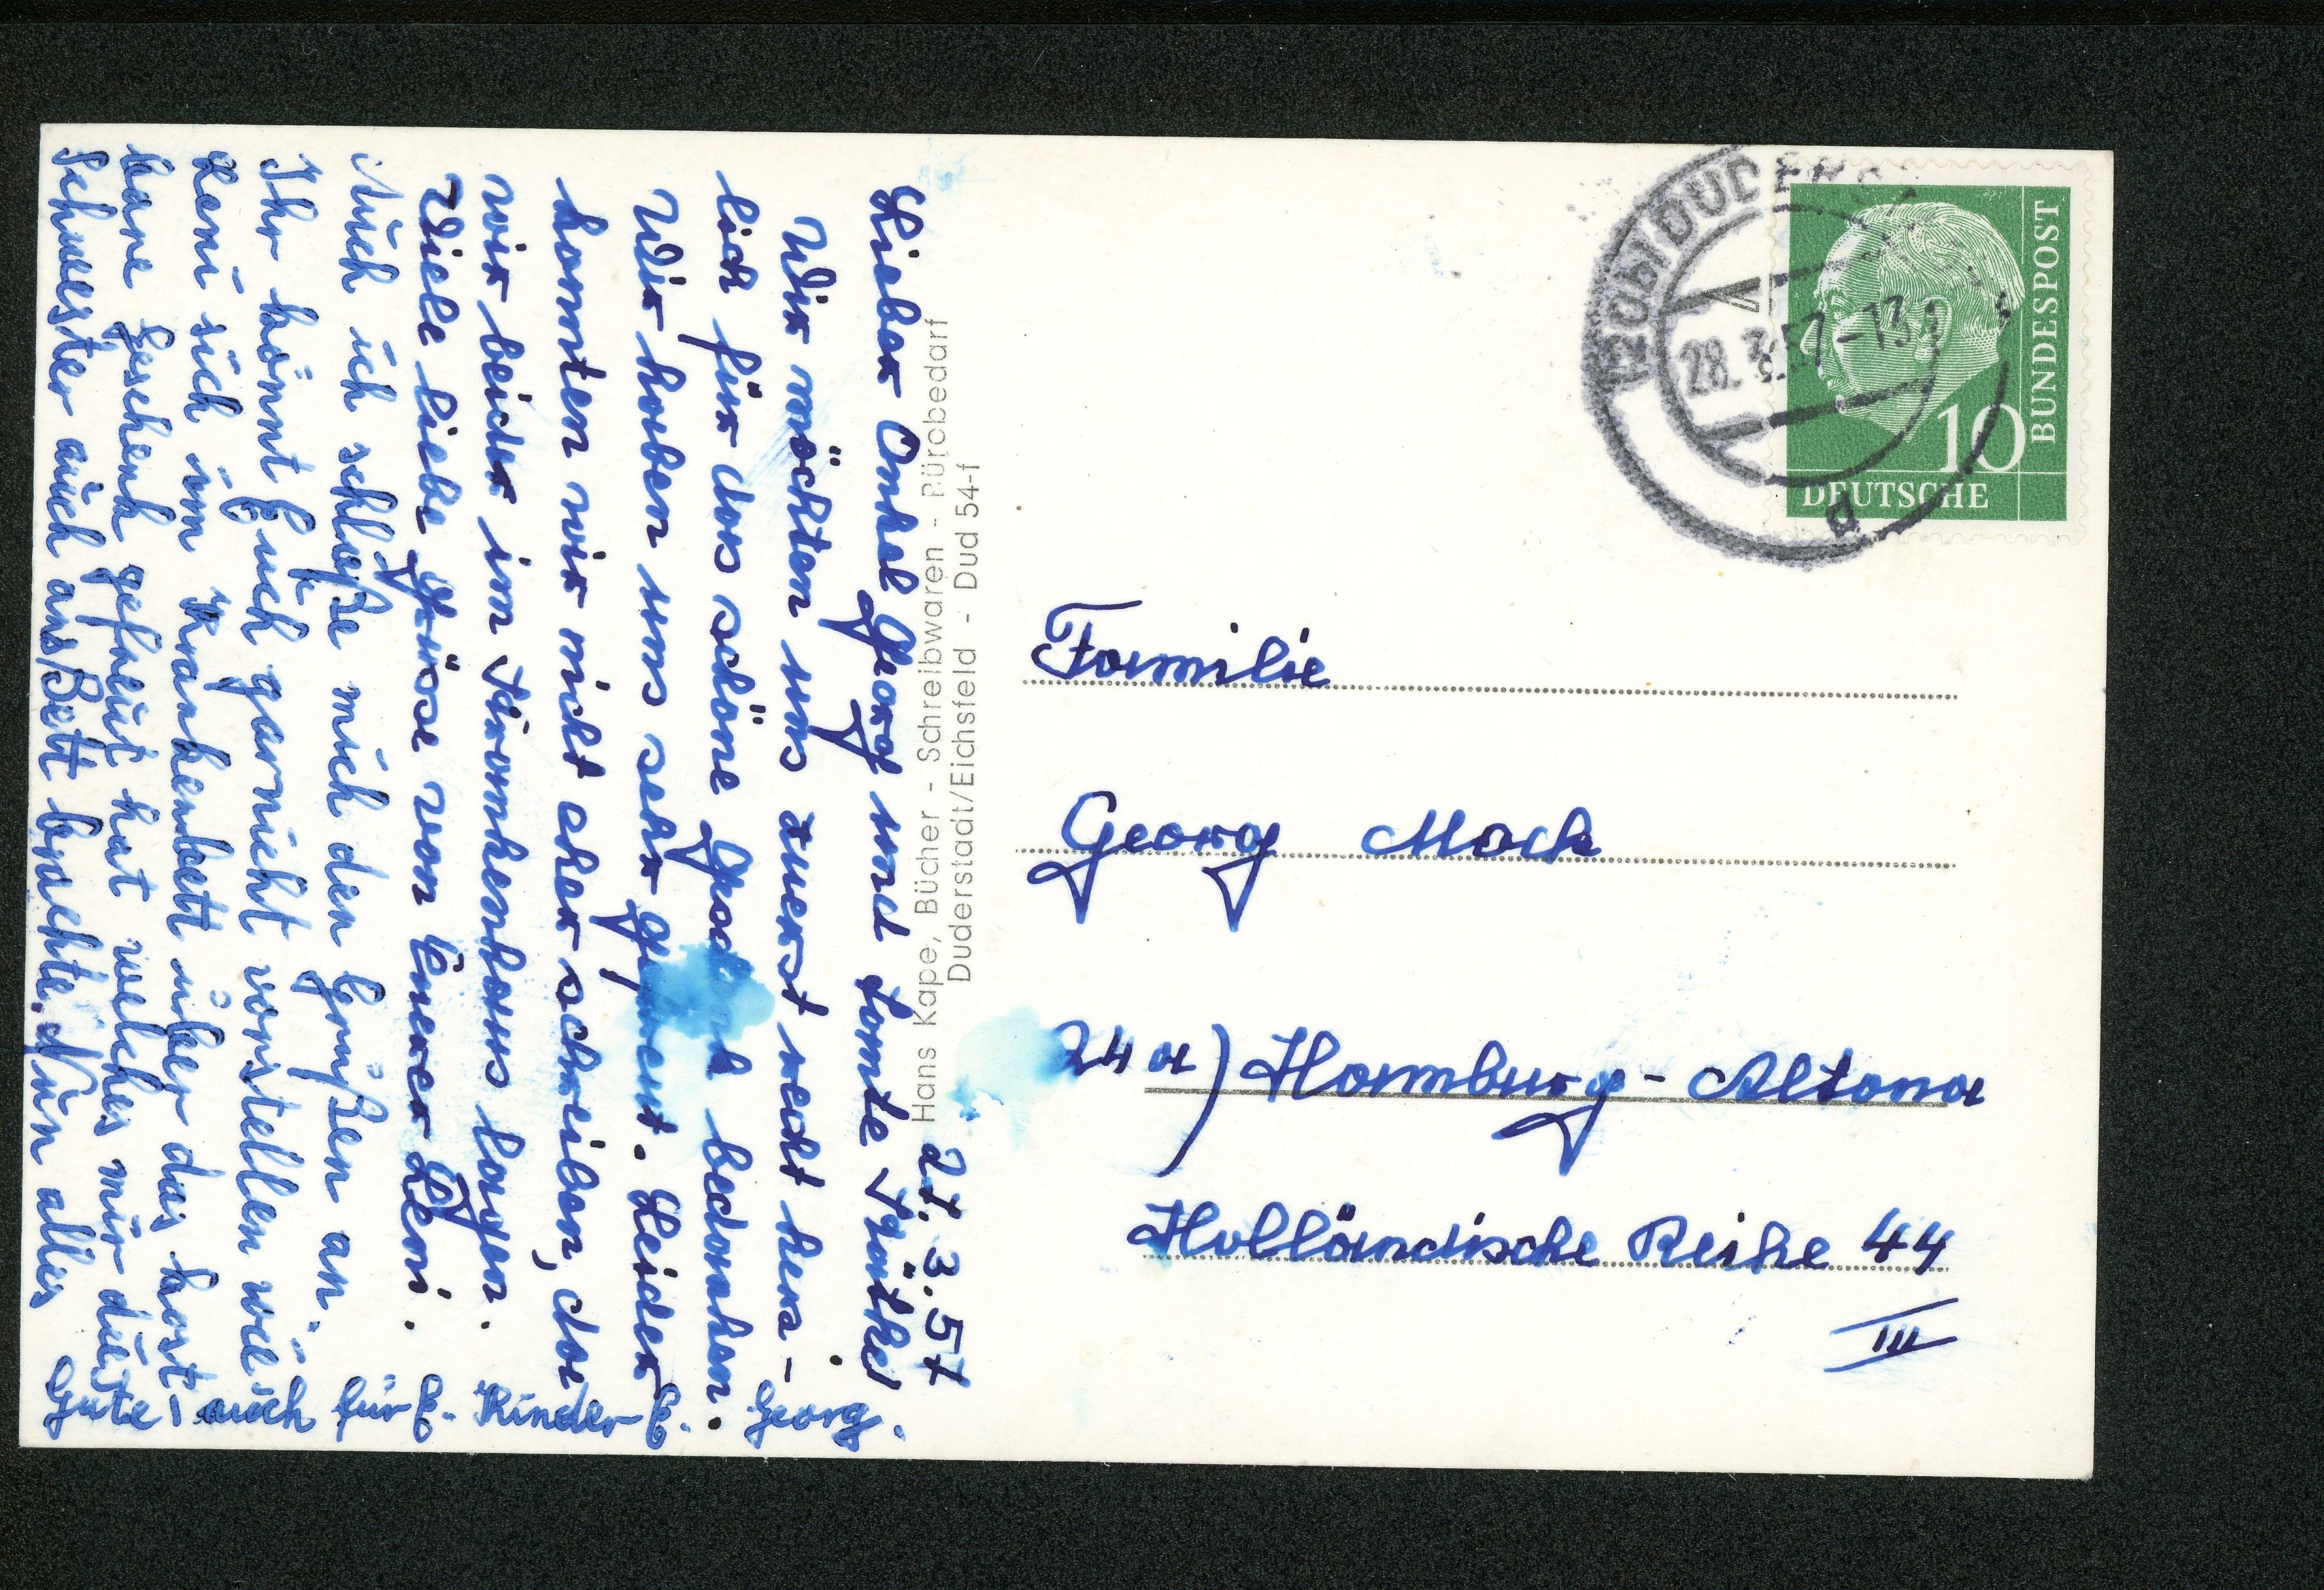 27.3.57
Lieber Onkel Georg und Tante Käthe!
Wir möchten uns zuerst recht herz-
lich für das schöne Geschenk bedanken.
Wir haben uns sehr gefreut. Leider
konnten wir nicht eher schreiben, da
wir beide im Krankenhaus lagen.
Viele liebe Grüse von Eurer Leni.
Auch ich schließe mich den Grüßen an.
Ihr könnt Euch garnicht vorstellen wie
Leni sich im Krankenbett über das kost-
bare Geschenk gefreut hat welches mir die
Schwester auch ans Bett brachte. Nun alles
Gute - auch für E. Kinder E. Georg.
Hans Kape, Bücher - Schreibwaren - Bürobedarf
Duderstadt/Eichsfeld - Dud 54-f
(20b) DUDERS
28.3.57-13
a
DEUTSCHE
BUNDESPOST
10
Familie
Georg Mock
24a) Hamburg-Altona
Holländische Reihe 44
III